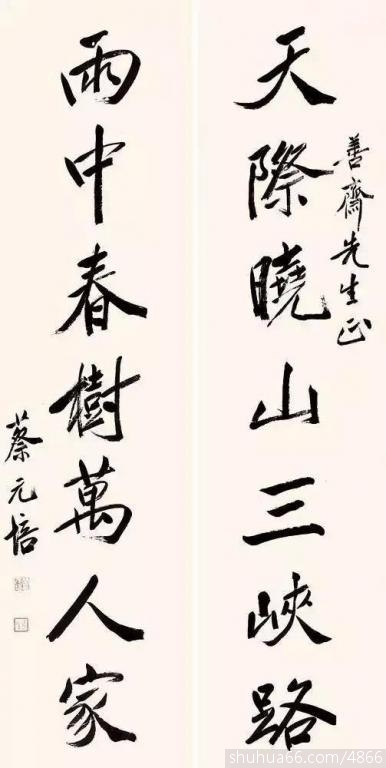 天際曉山三峽路
善齋先生正
雨中春樹萬人家
蔡元培
shuhua66.com/4866